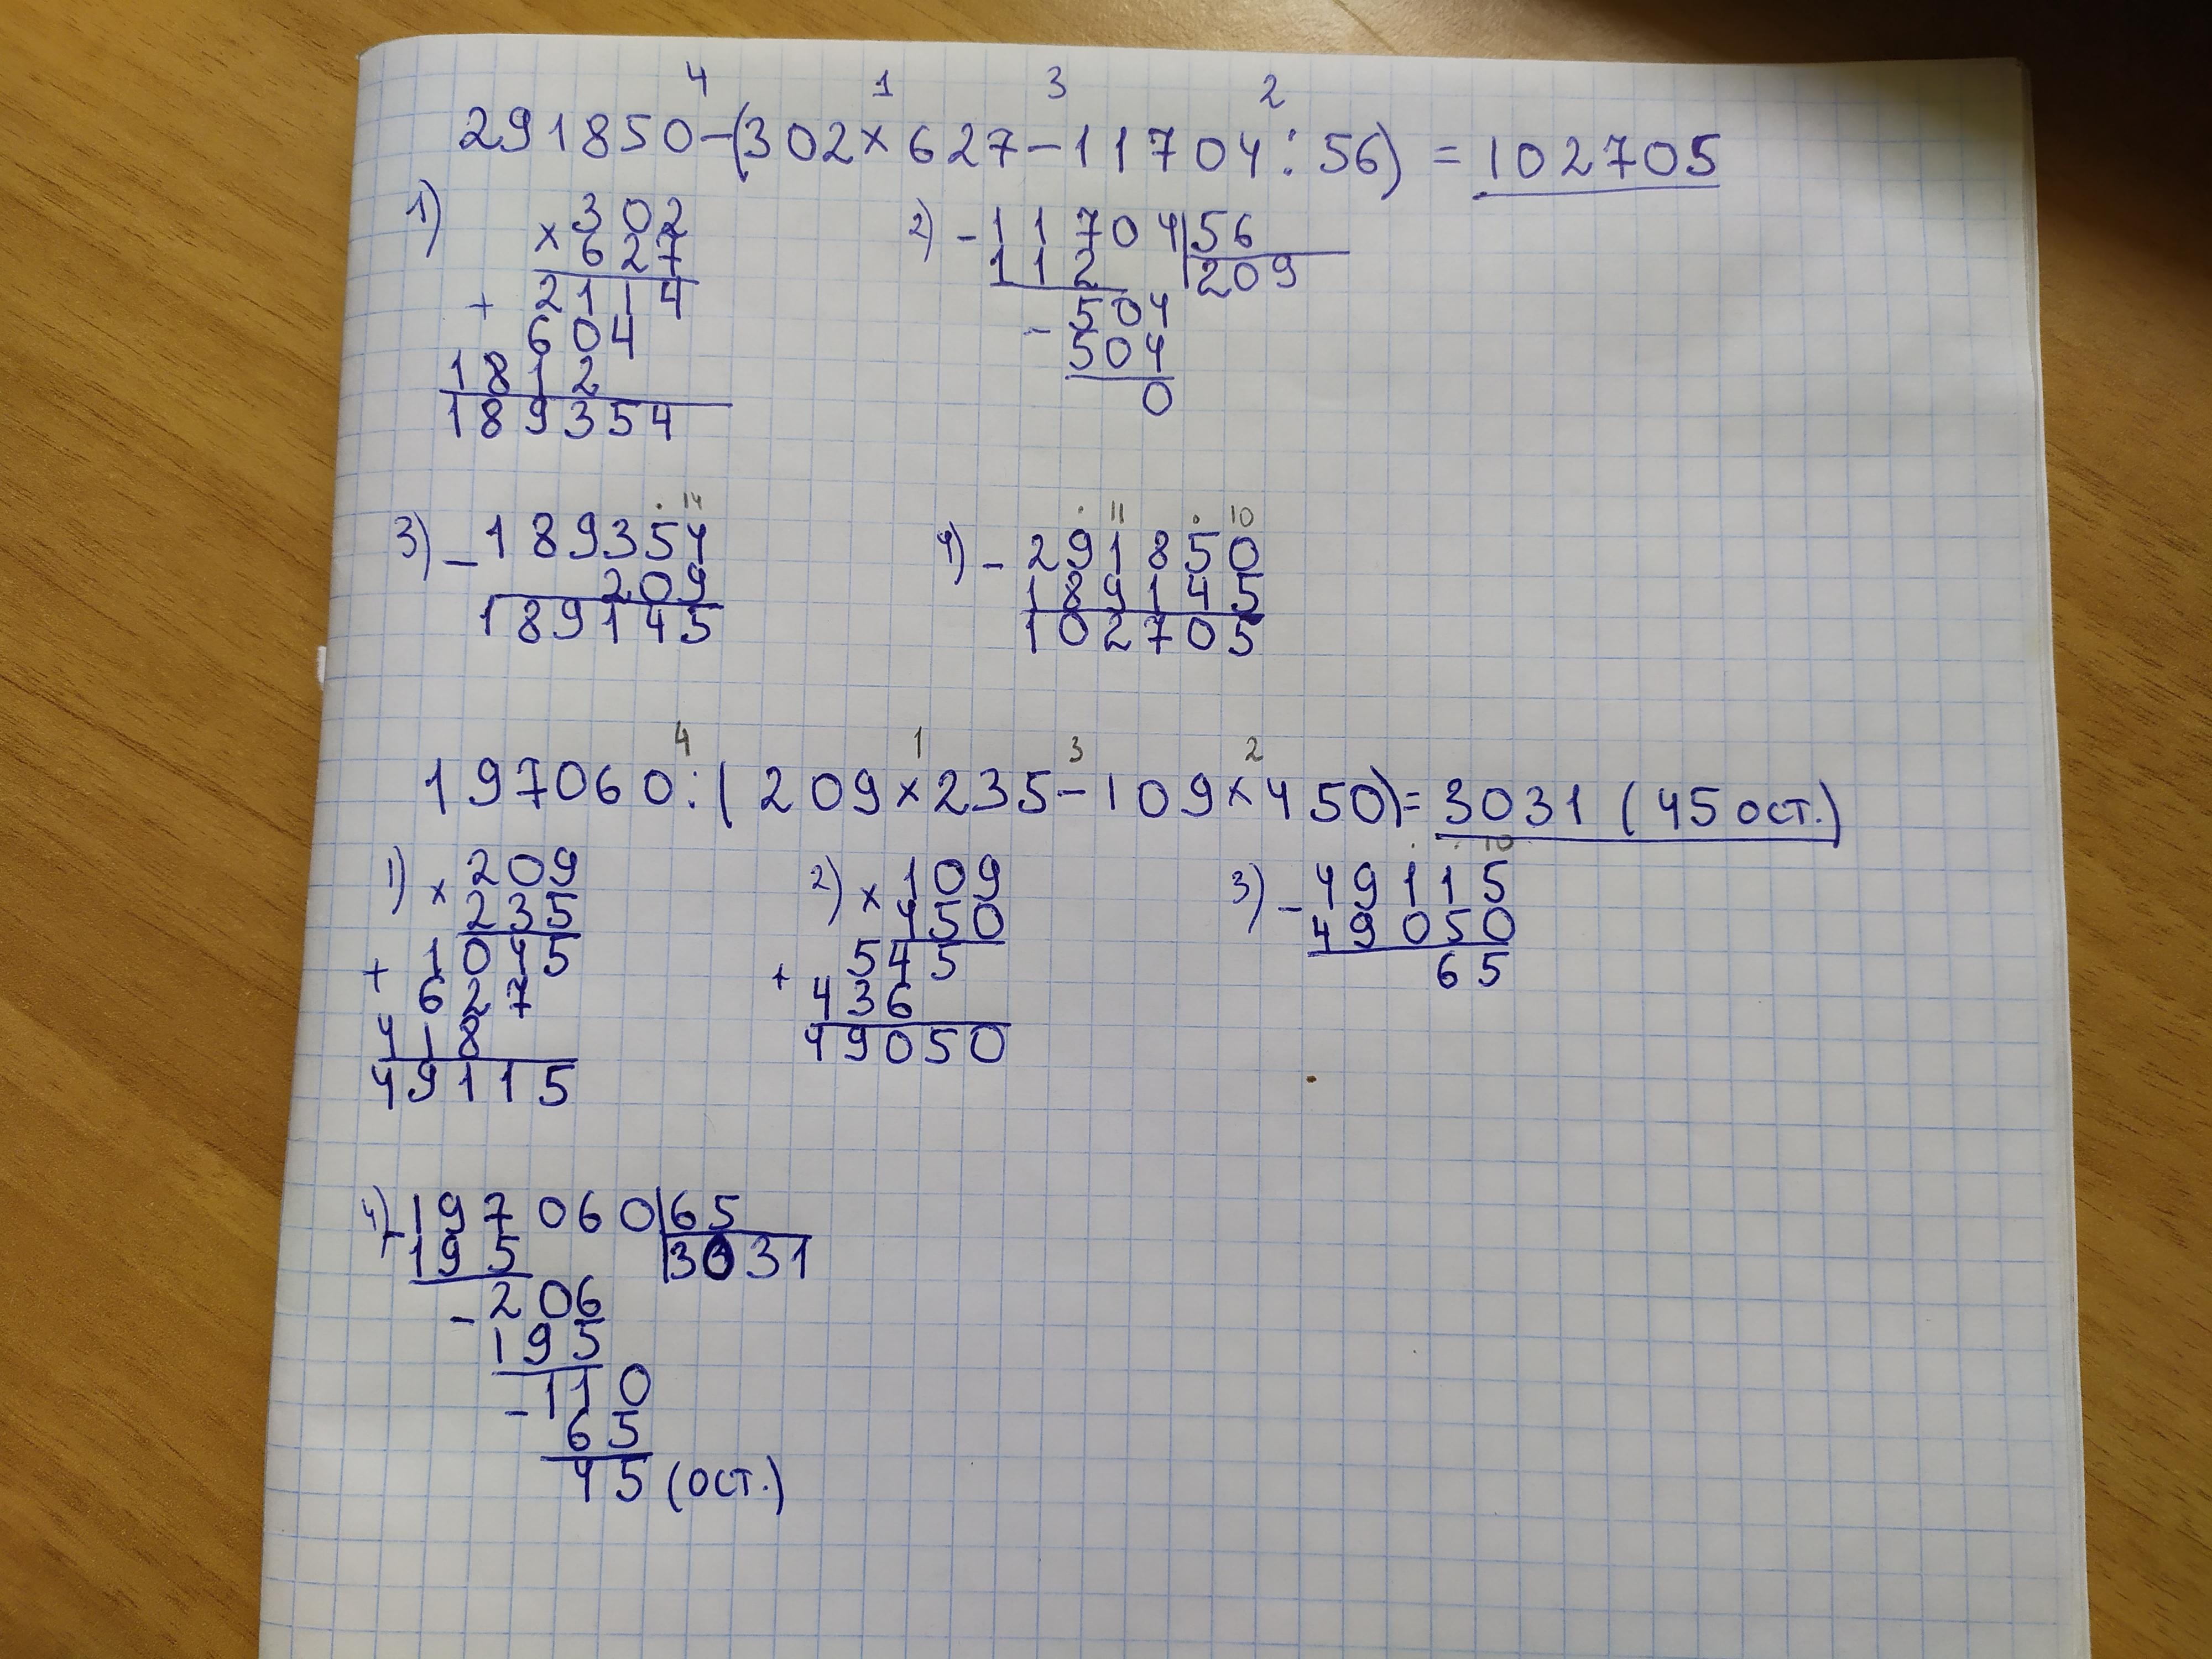 4 1 3 2
291850-(302×627-11704:56) = 102705
1)
× 302
627
+ 2114
604
1812
189354
2) - 11704|56
112 |209
- 504
504
0
. 14
3) - 189354
209
189145
. 11 . 10
4) - 291850
189145
102705
4 1 3 2
197060:(209×235-109×450)= 3031 (45 ост.)
1) × 209
235
+ 1045
627
418
49115
2) × 109
450
+ 545
436
49050
. . 10
3) - 49115
49050
65
4) - 197060|65
195 |3031
- 206
195
- 110
65
45 (ост.)